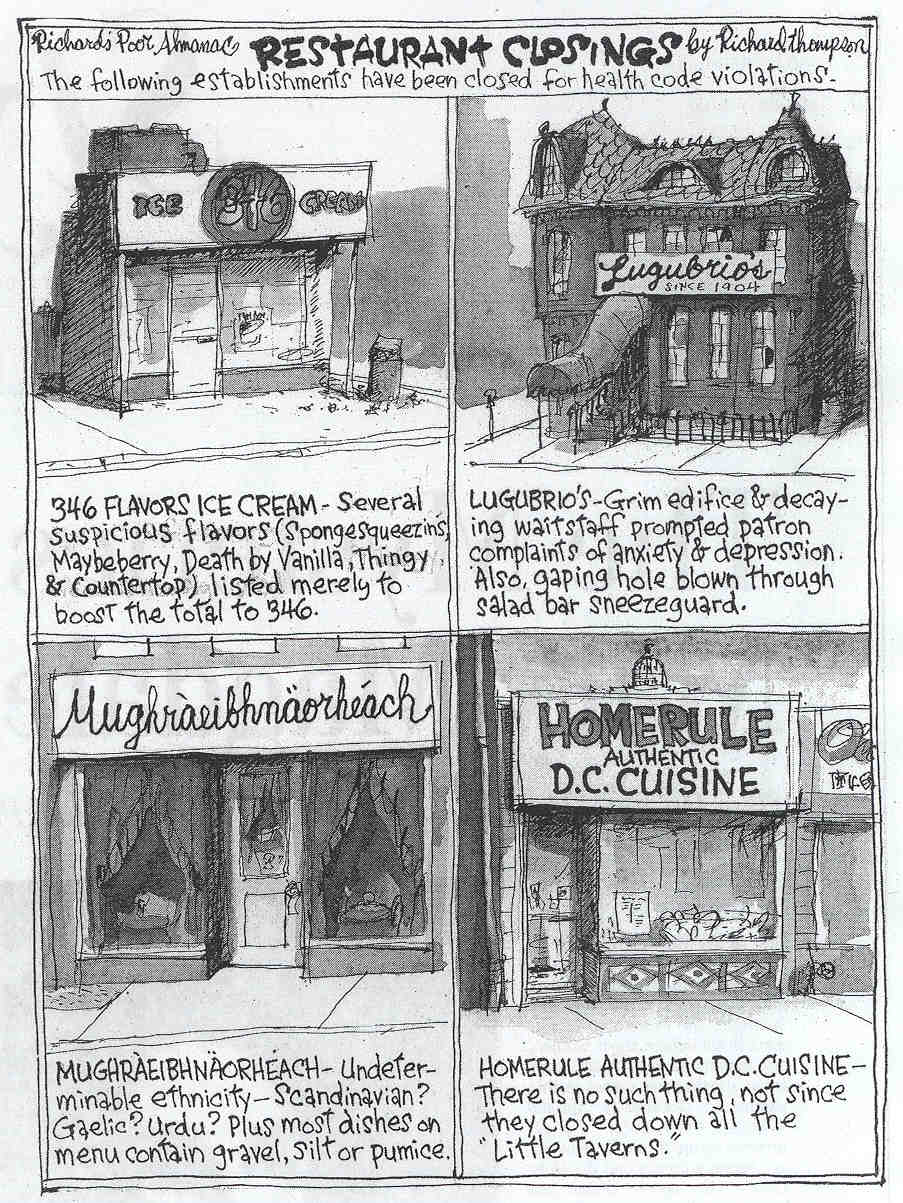 Richard's Poor Almanac RESTAURANT CLOSINGS by Richard Thompson
The following establishments have been closed for health code violations-
ICE 346 CREAM
346 FLAVORS ICE CREAM - Several
suspicious flavors (Spongesqueezin's,
Maybeberry, Death by Vanilla, Thingy,
& Countertop) listed merely to
boost the total to 346.
Lugubrio's
SINCE 1904
LUGUBRIO'S - Grim edifice & decay-
ing waitstaff prompted patron
complaints of anxiety & depression.
Also, gaping hole blown through
salad bar sneezeguard.
Mughràeibhnäorhéach
MUGHRÀEIBHNÄORHÉACH - Undeter-
minable ethnicity - Scandinavian?
Gaelic? Urdu? Plus most dishes on
menu contain gravel, silt or pumice.
HOMERULE
AUTHENTIC
D.C. CUISINE
HOMERULE AUTHENTIC D.C. CUISINE -
There is no such thing, not since
they closed down all the
"Little Taverns."